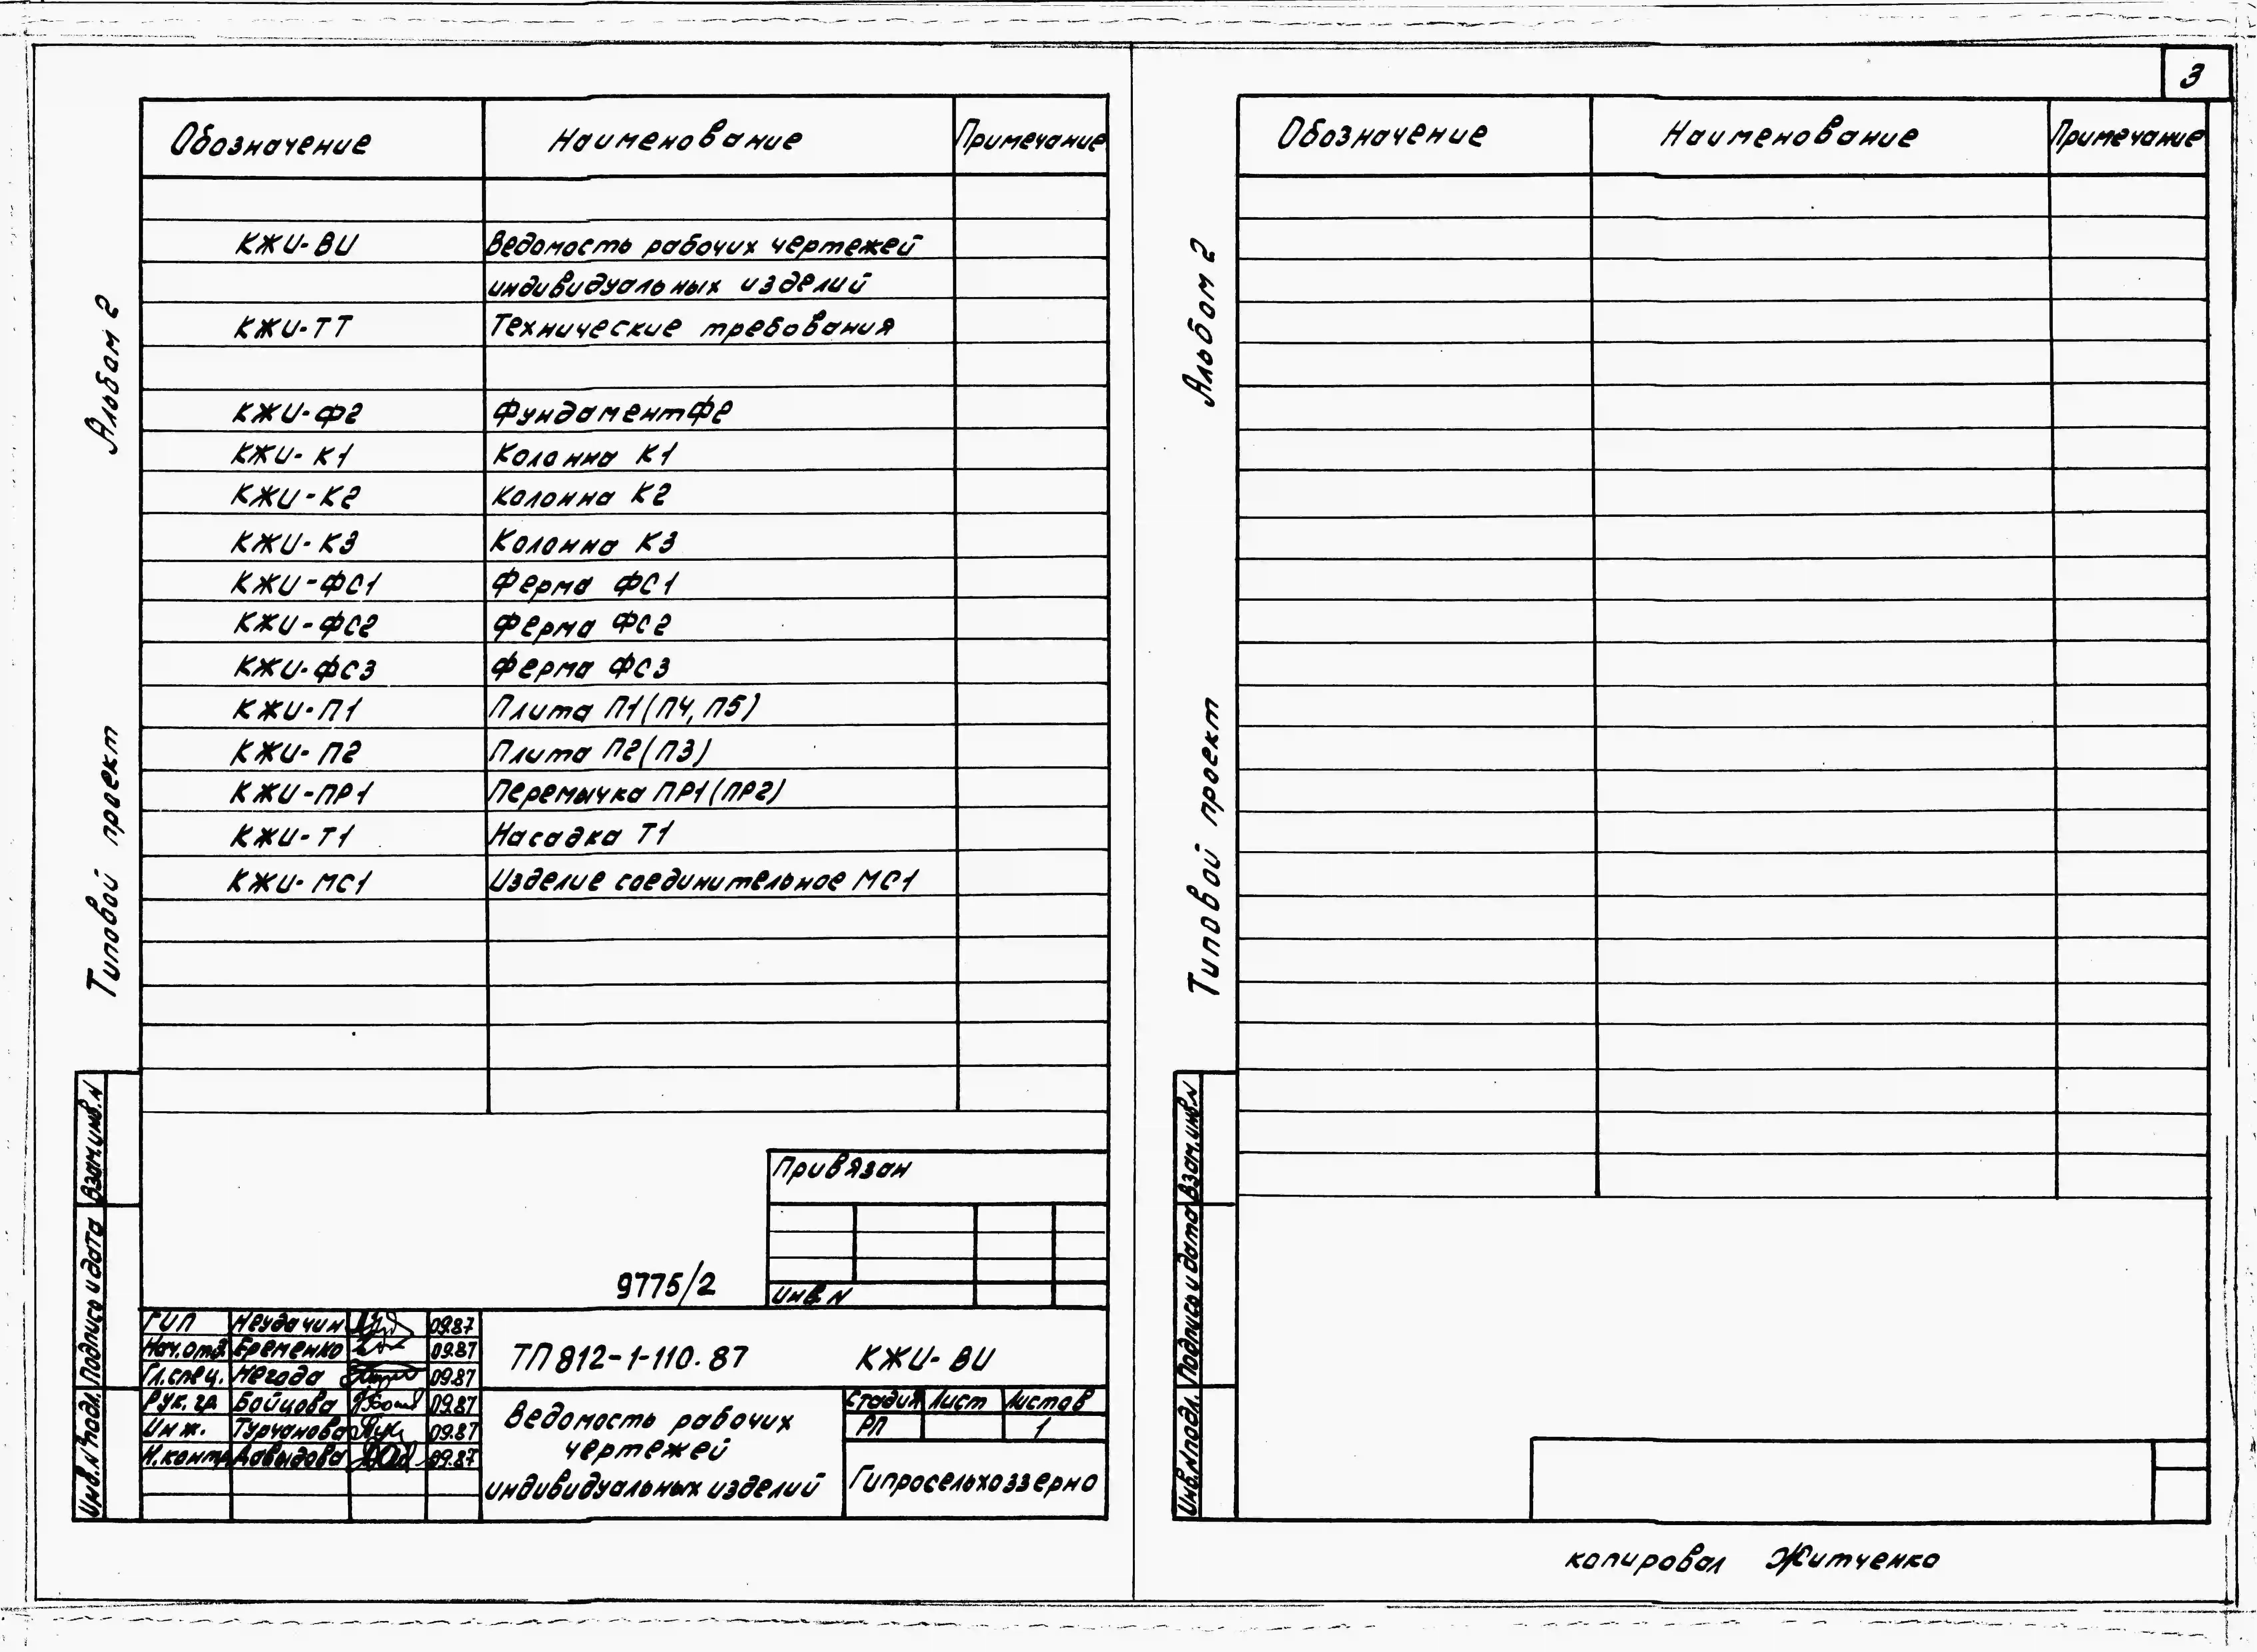 3
Обозначение Наименование Примечание
КЖИ-ВИ Ведомость рабочих чертежей
индивидуальных изделий
КЖИ-ТТ Технические требования
КЖИ-Ф2 Фундамент Ф2
КЖИ-К1 Колонна К1
КЖИ-К2 Колонна К2
КЖИ-К3 Колонна К3
КЖИ-ФС1 Ферма ФС1
КЖИ-ФС2 Ферма ФС2
КЖИ-ФС3 Ферма ФС3
КЖИ-П1 Плита П1(П4, П5)
КЖИ-П2 Плита П2(П3)
КЖИ-ПР1 Перемычка ПР1(ПР2)
КЖИ-Т1 Насадка Т1
КЖИ-МС1 Изделие соединительное МС1
Альбом 2
Типовой проект
Взам.инв.N
Подпись и дата
Инв.N°подл.
Привязан
Инв.N
9775/2
ГИП Неудачин 09.87
Нач.отд. Еременко 09.87
Гл.спец. Негода 09.87
Рук.гр. Бойцова 09.87
Инж. Турчанова 09.87
Н.контр. Давыдова 09.87
ТП 812-1-110.87 КЖИ-ВИ
Ведомость рабочих
чертежей
индивидуальных изделий
Стадия Лист Листов
РП 1
Гипросельхоззерно
Обозначение Наименование Примечание
Альбом 2
Типовой проект
Взам.инв.N
Подпись и дата
Инв.Nподл.
копировал Житченко